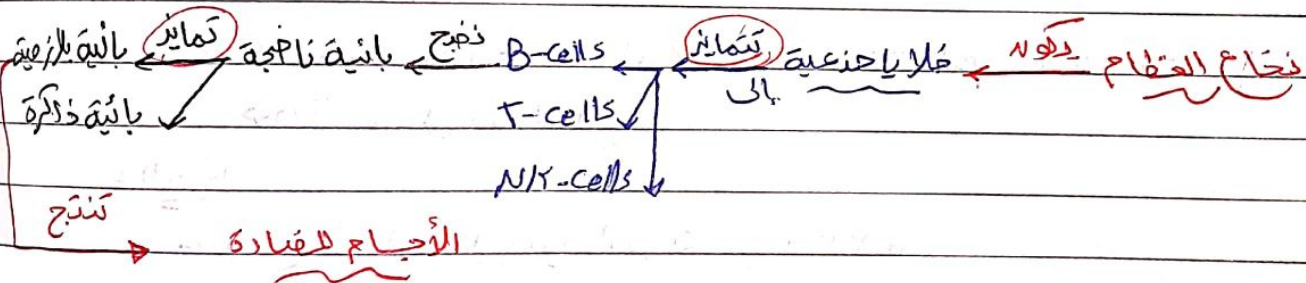 نخاع العظام يكون خلايا جذعية تتمايز إلى B-cells نضج بائية ناضجة تمايز بائية بلازمية
T-cells بائية ذاكرة
N/K-cells
تنتج
الأجسام المضادة